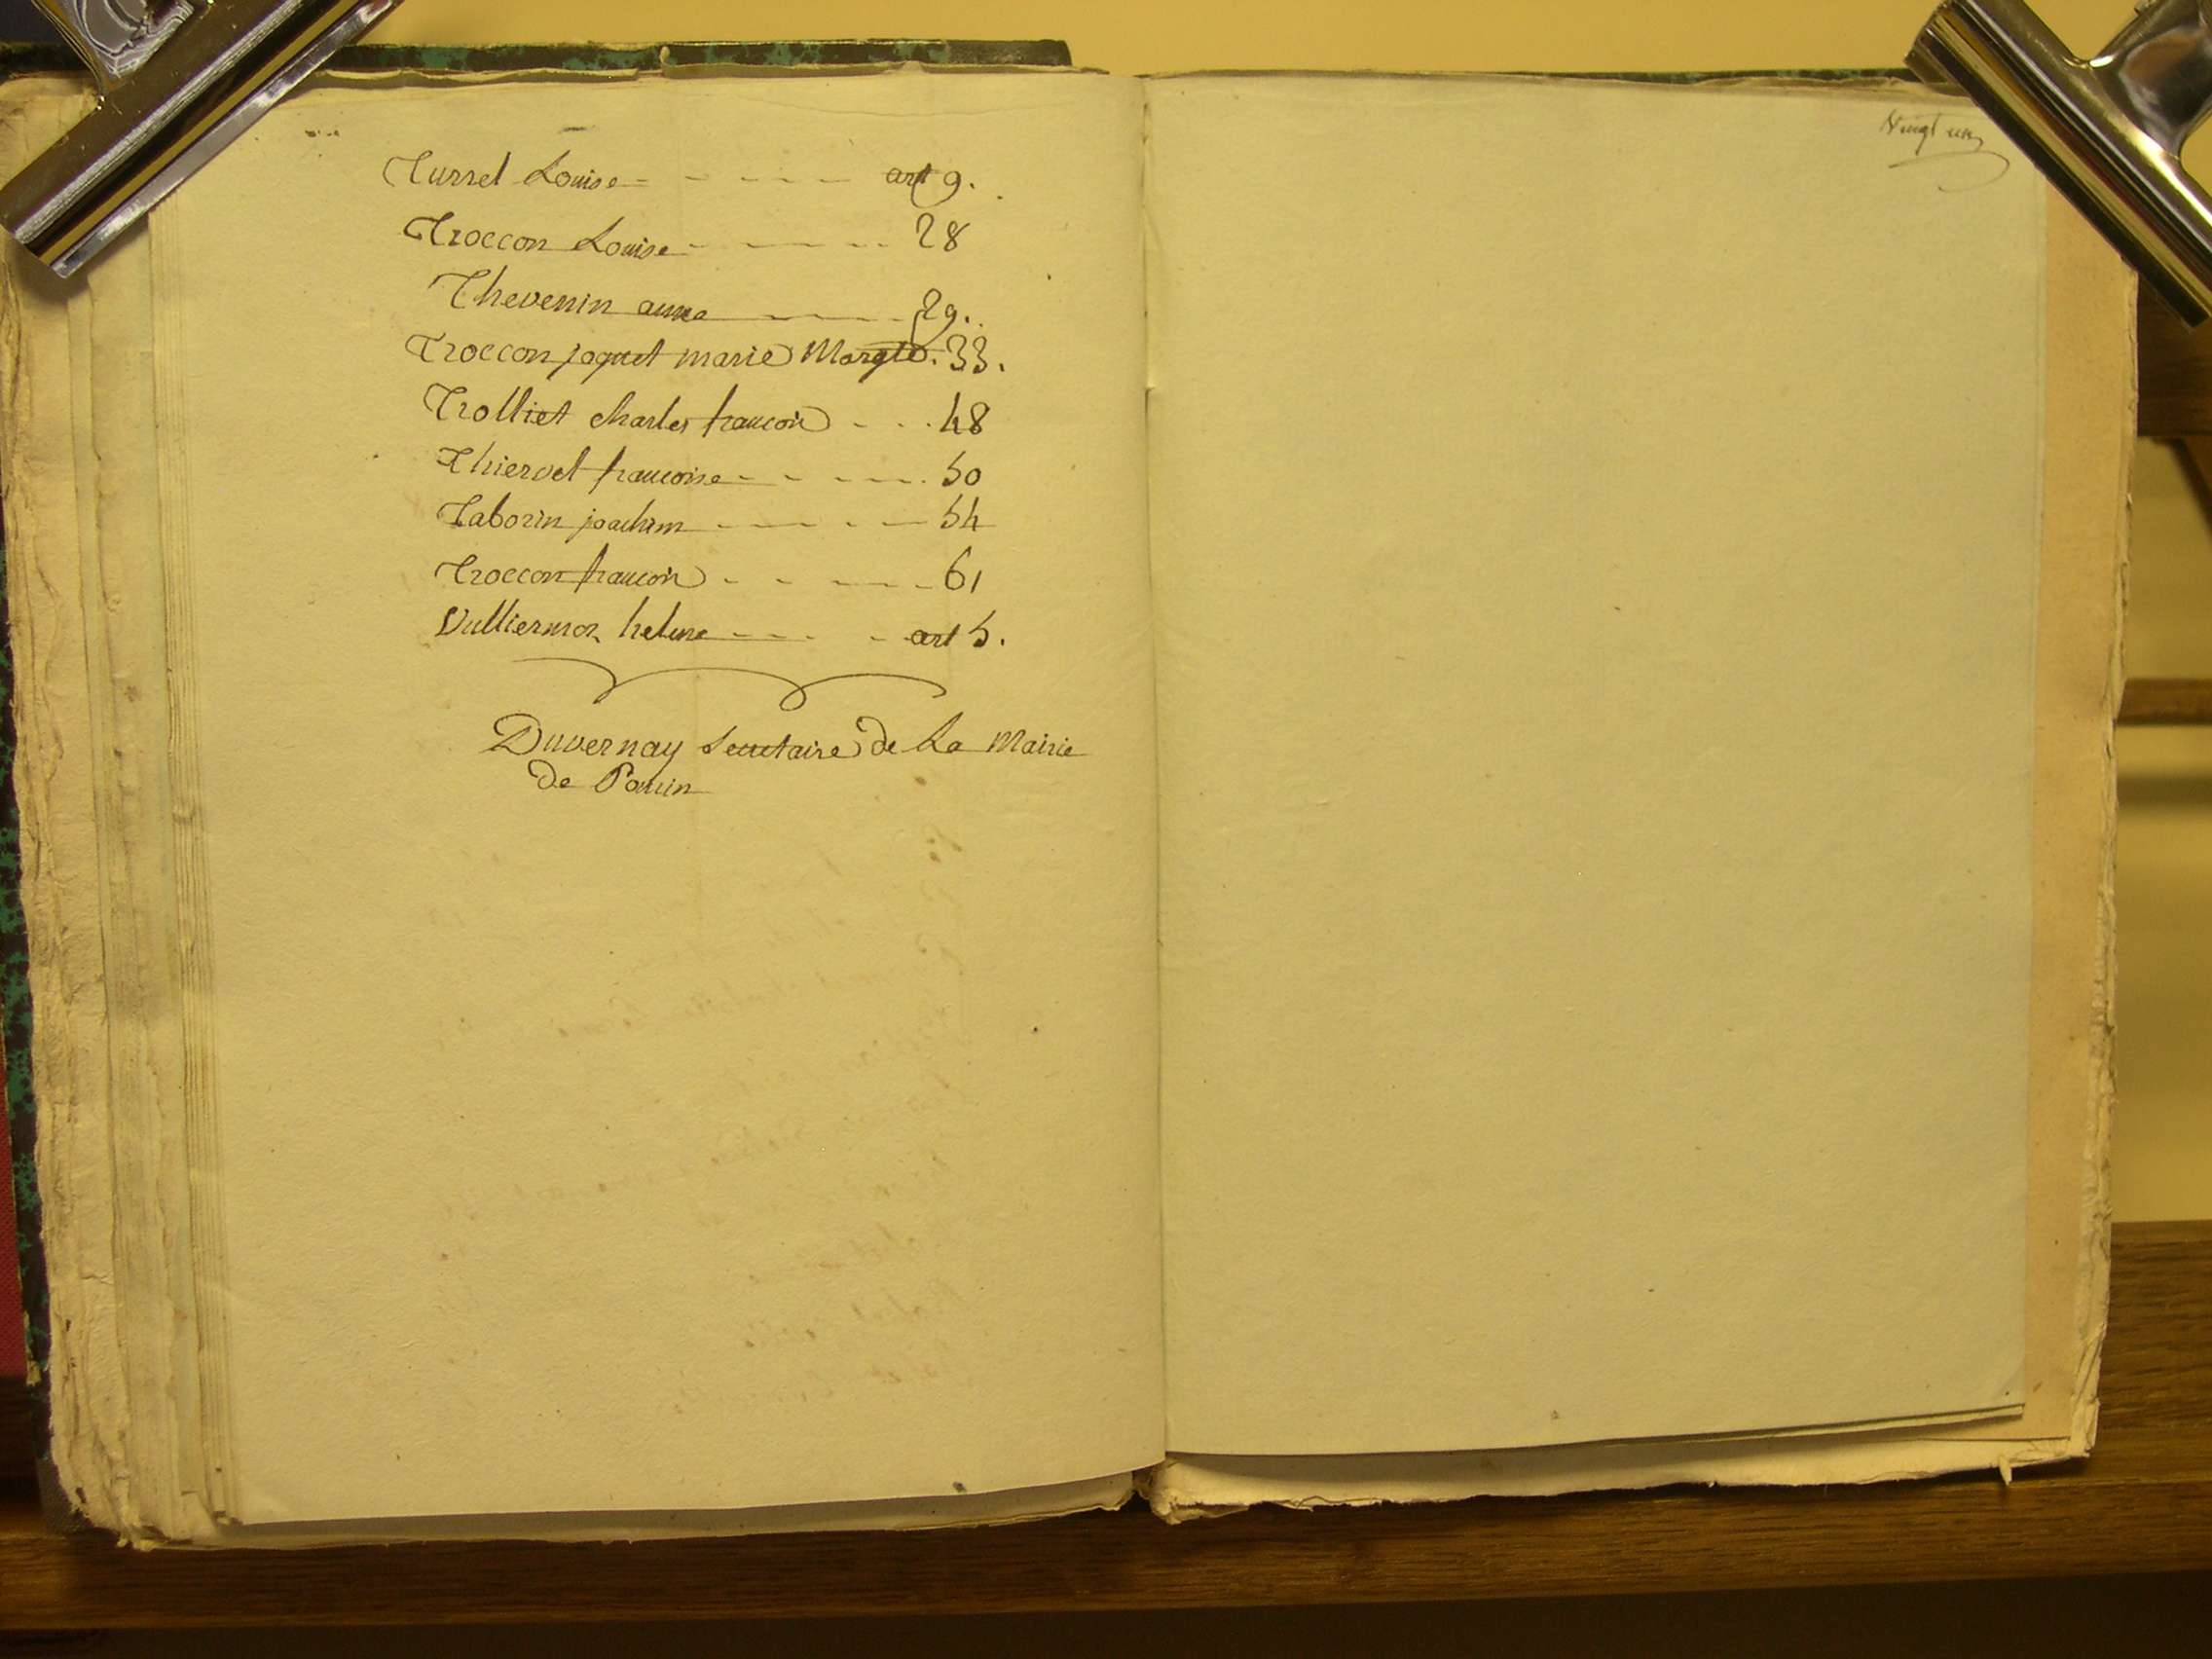 Turrel Louise art 9.
Troccon Louise 28
Thevenin anne 29.
Troccon joquet marie Margte. 33.
Trolliet charles francois 48
Thiervet francoise 50
Taborin joachim 54
Troccon francois 61
Vulliermoz helene art 5.
Duvernay Secretaire de La Mairie
de Poncin
Vingt un